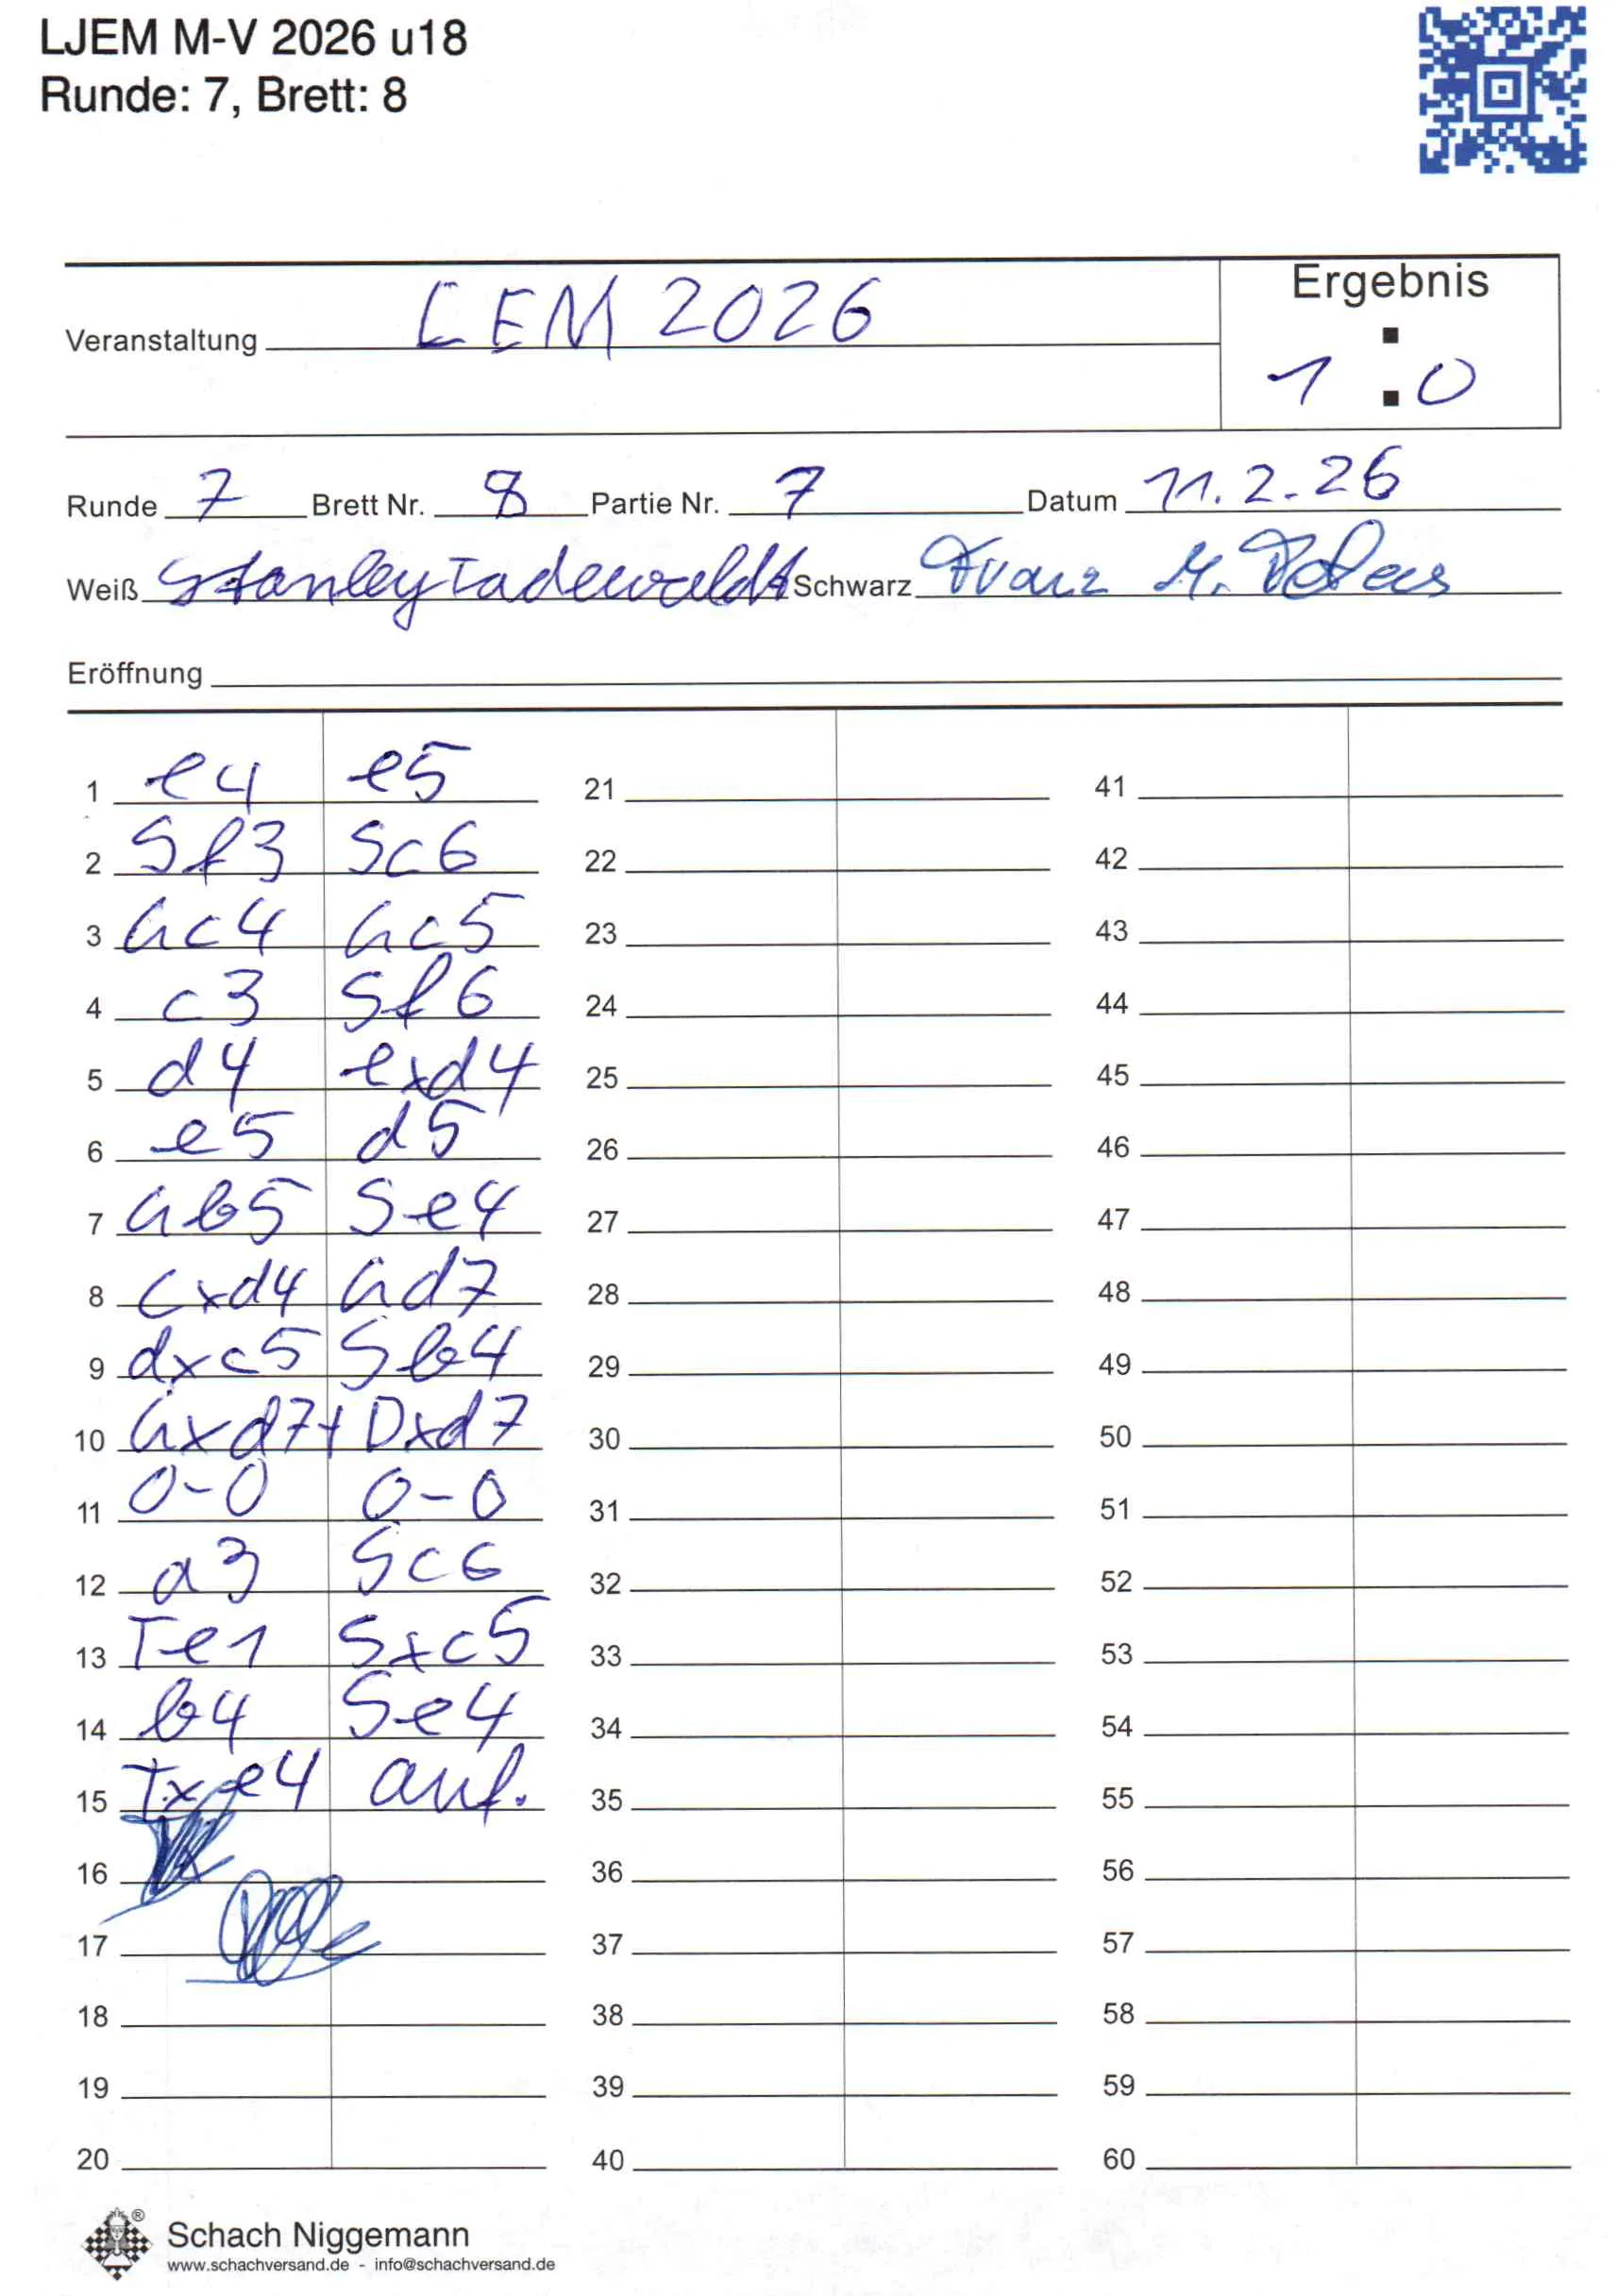 LJEM M-V 2026 u18
Runde: 7, Brett: 8
Ergebnis
Veranstaltung LEM 2026
1 : 0
Runde 7 Brett Nr. 8 Partie Nr. 7 Datum 11.2.26
Weiß Stanley Tadewaldt Schwarz Franz M.
Eröffnung
1 e4 e5 21 41
2 Sf3 Sc6 22 42
3 Lc4 Lc5 23 43
4 c3 Sf6 24 44
5 d4 exd4 25 45
6 e5 d5 26 46
7 Lb5 Se4 27 47
8 cxd4 Ld7 28 48
9 dxc5 Sb4 29 49
10 Lxd7+ Dxd7 30 50
11 0-0 0-0 31 51
12 a3 Sc6 32 52
13 Te1 Sxc5 33 53
14 b4 Se4 34 54
15 Txe4 auf. 35 55
16 36 56
17 37 57
18 38 58
19 39 59
20 40 60
Schach Niggemann
www.schachversand.de - info@schachversand.de